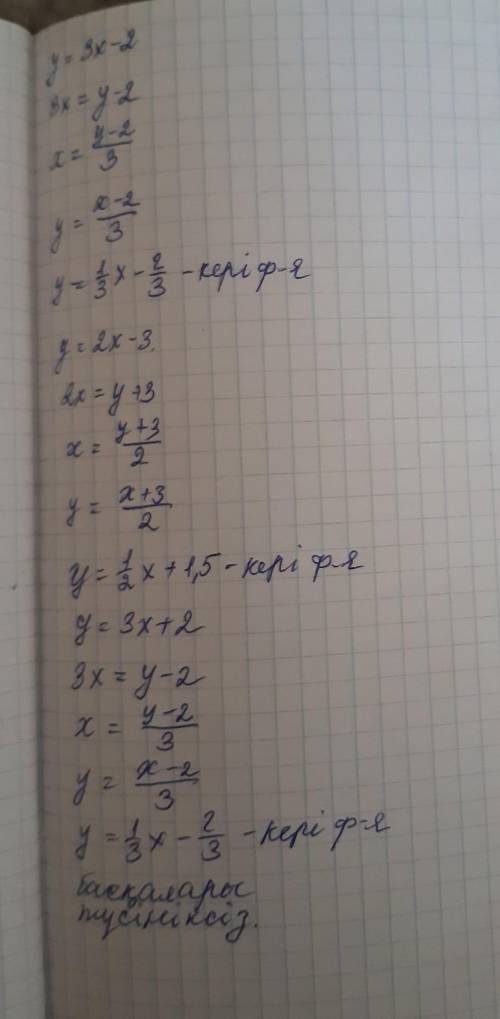 y = 3x - 2
3x = y - 2
x = \frac{y-2}{3}
y = \frac{x-2}{3}
y = \frac{1}{3}x - \frac{2}{3} - кері ф-я
y = 2x - 3.
2x = y + 3
x = \frac{y+3}{2}
y = \frac{x+3}{2}
y = \frac{1}{2}x + 1,5 - кері ф-я
y = 3x + 2
3x = y - 2
x = \frac{y-2}{3}
y = \frac{x-2}{3}
y = \frac{1}{3}x - \frac{2}{3} - кері ф-я
басқалары
түсініксіз.